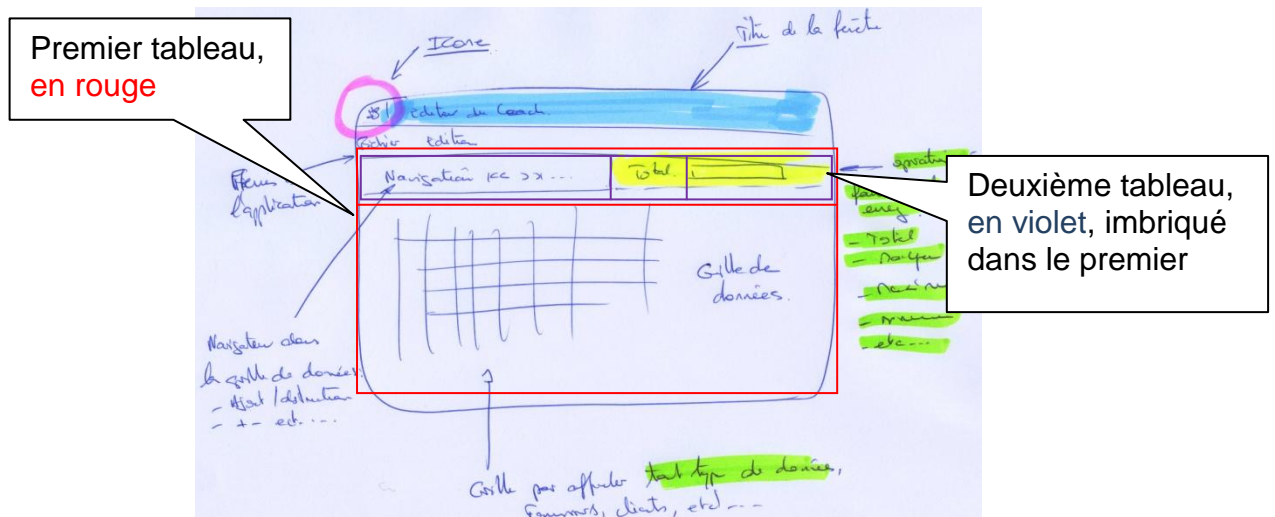 Premier tableau,
en rouge
Icone
Titre de la fenêtre
Editeur du Coach
Fichier edition
Navigation << >> ...
Total
Menus
l'application
opération
enreg
- Total
- etc...
Deuxième tableau,
en violet, imbriqué
dans le premier
Grille de
données.
Navigateur dans
la grille de données:
- Ajout / destruction
- + -
Grille pour afficher tout type de données,
clients, etc...